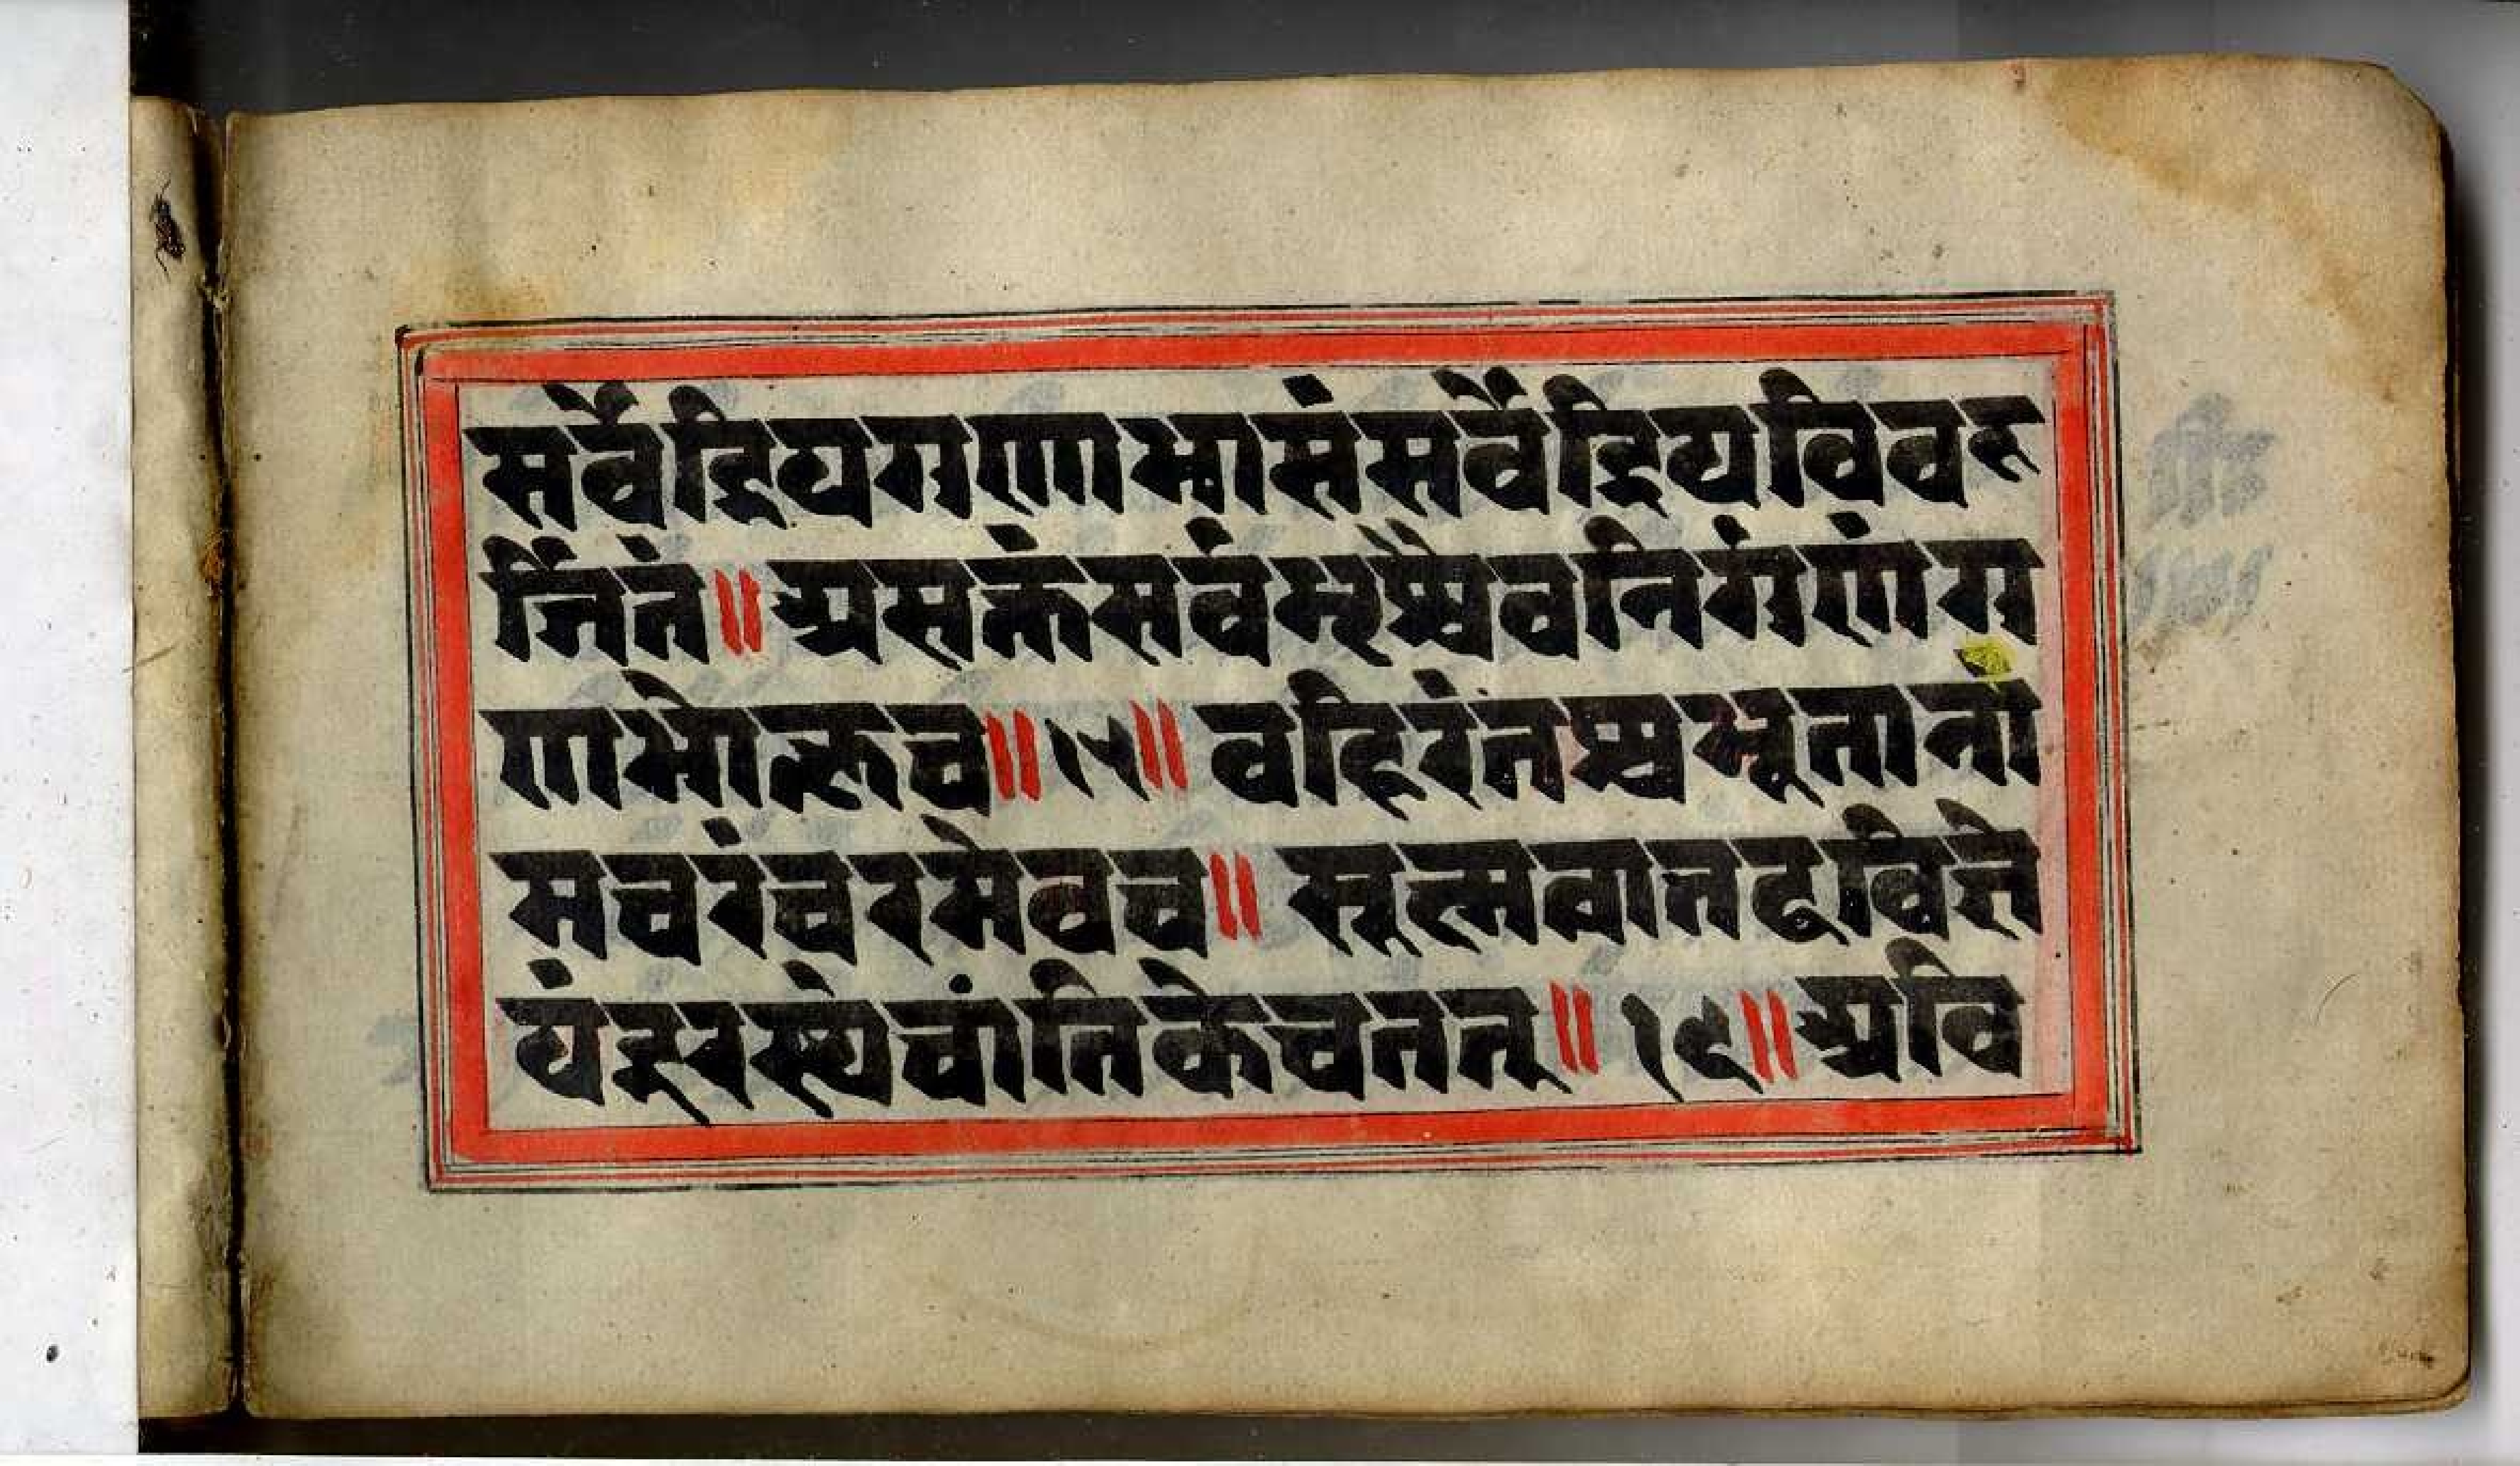 सर्वेंद्रियगुणाभासं सर्वेंद्रियविवर
र्जितं ॥ असक्तं सर्वभृच्चैव निर्गुणं गु
णभोक्तृ च ॥ १५ ॥ वहिरंतश्च भूतानां
मचरं चरमेव च ॥ सूक्ष्मत्वात्तदविज्ञे
यं दूरस्थं चांतिके च तत् ॥ १६ ॥ अवि